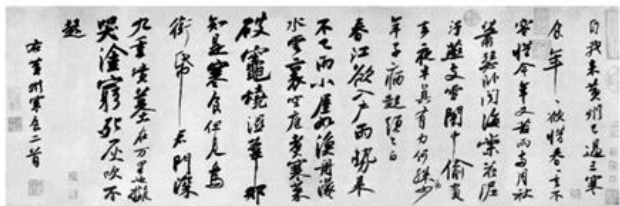 自我來黃州已過三寒
食年々欲惜春々去不
容惜今年又苦雨兩月秋
蕭瑟臥聞海棠花泥
汙燕支雪闇中偷負
去夜半真有力何殊少
年子病起頭已白
春江欲入戶雨勢來
不已雨小屋如漁舟濛々
水雲裏空庖煮寒菜
破竈燒濕葦那
知是寒食但見烏
銜帋君門深
九重墳墓在万里也擬
哭塗窮死灰吹不
起
右黃州寒食二首